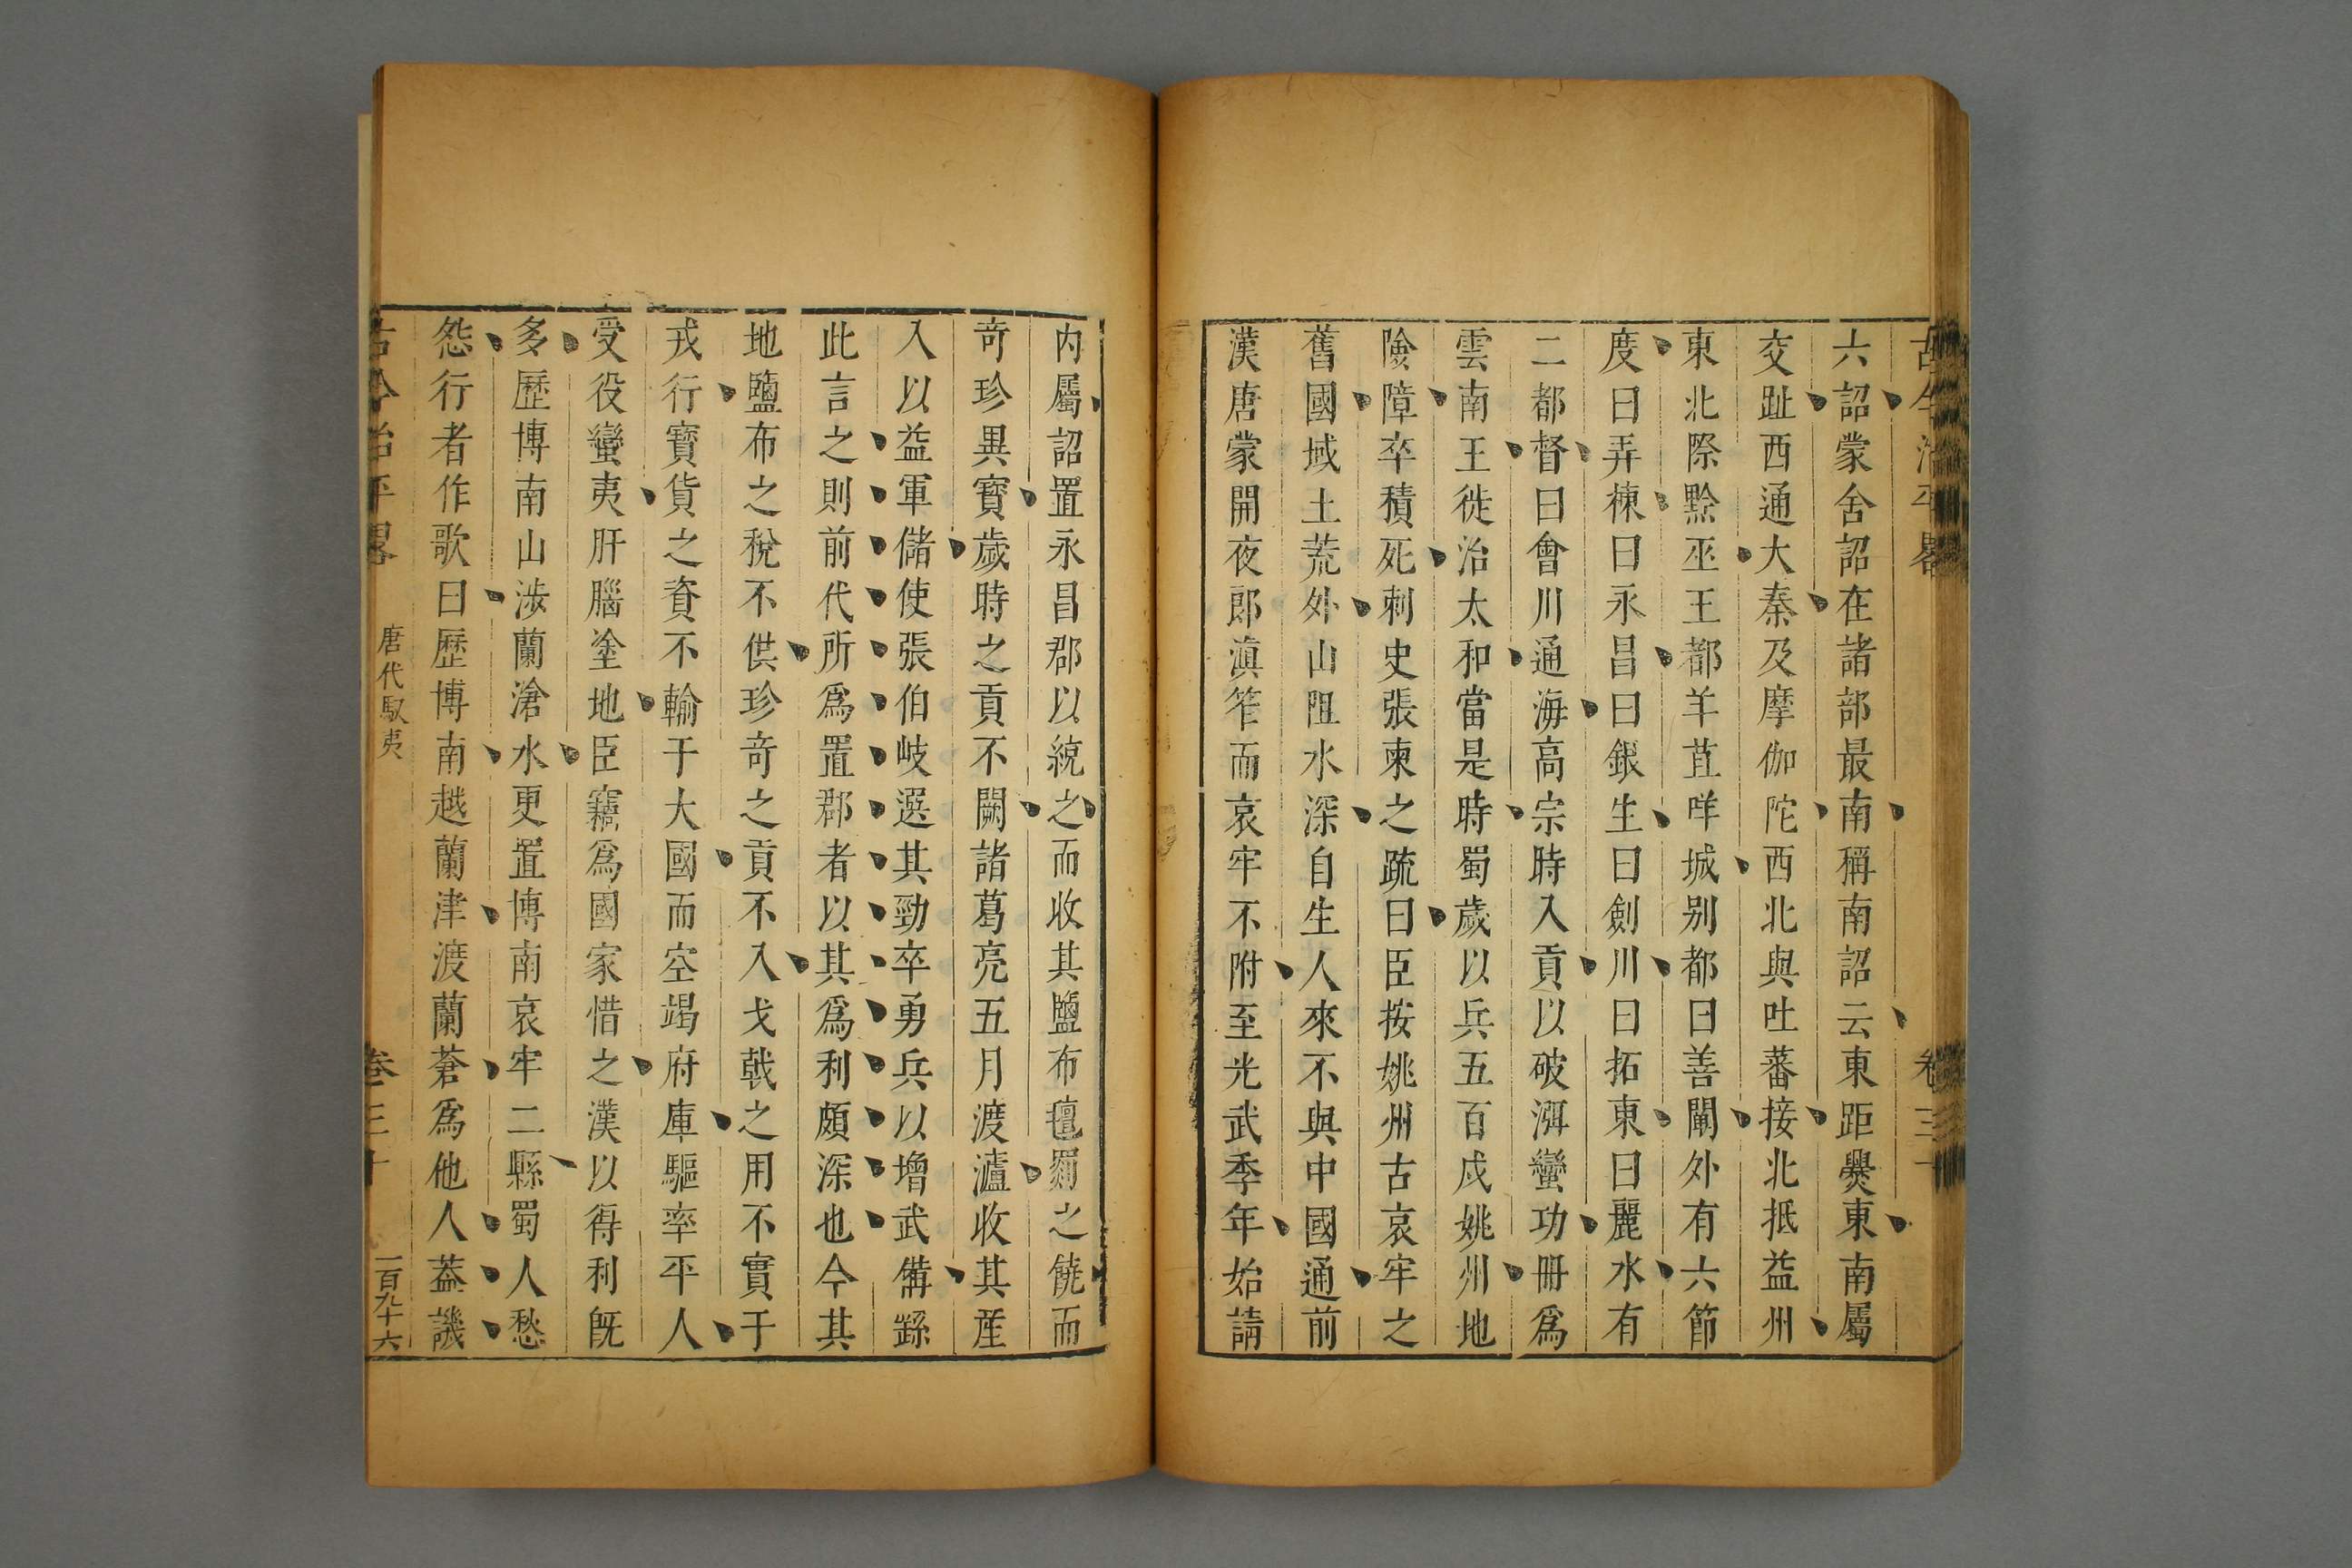 古今治平畧 卷三十
六詔蒙舍詔在諸部最南稱南詔云東距爨東南屬
交趾西通大秦及摩伽陀西北與吐蕃接北抵益州
東北際黔巫王都羊苴咩城别都曰善闡外有六節
度曰弄棟曰永昌曰銀生曰劍川曰拓東曰麗水有
二都督曰會川通海高宗時入貢以破洱蠻功冊爲
雲南王徙治太和當是時蜀歲以兵五百戍姚州地
險障卒積死刺史張柬之疏曰臣按姚州古哀牢之
舊國域土荒外山阻水深自生人來不與中國通前
漢唐蒙開夜郎滇筰而哀牢不附至光武季年始請
内屬詔置永昌郡以統之而收其鹽布氊罽之饒而
竒珍異寳歲時之貢不闕諸葛亮五月渡瀘收其産
入以益軍儲使張伯岐選其勁卒勇兵以增武備繇
此言之則前代所爲置郡者以其爲利頗深也今其
地鹽布之稅不供珍竒之貢不入戈戟之用不實于
戎行寳貨之資不輸于大國而空竭府庫驅率平人
受役蠻夷肝腦塗地臣竊爲國家惜之漢以得利旣
多歷博南山涉蘭滄水更置博南哀牢二縣蜀人愁
怨行者作歌曰歷博南越蘭津渡蘭蒼爲他人葢譏
古今治平畧 唐代馭夷 卷三十 一百九十六